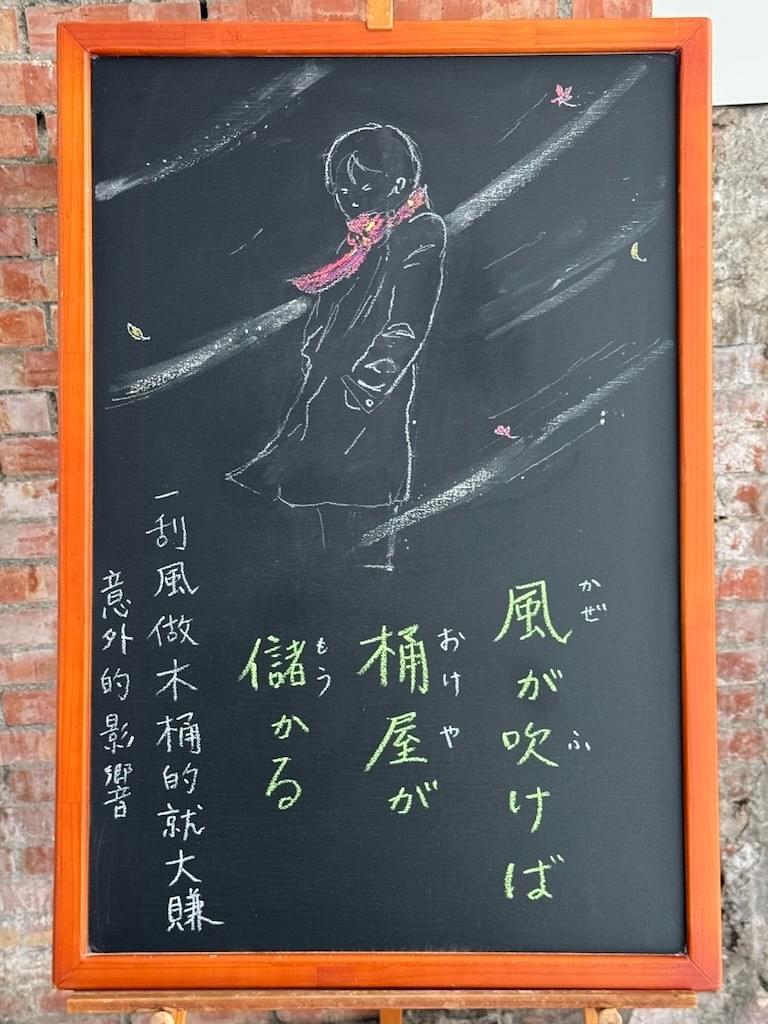 風が吹けば
かぜ
ふ
桶屋が
おけや
儲かる
もう
一刮風做木桶的就大賺
意外的影響